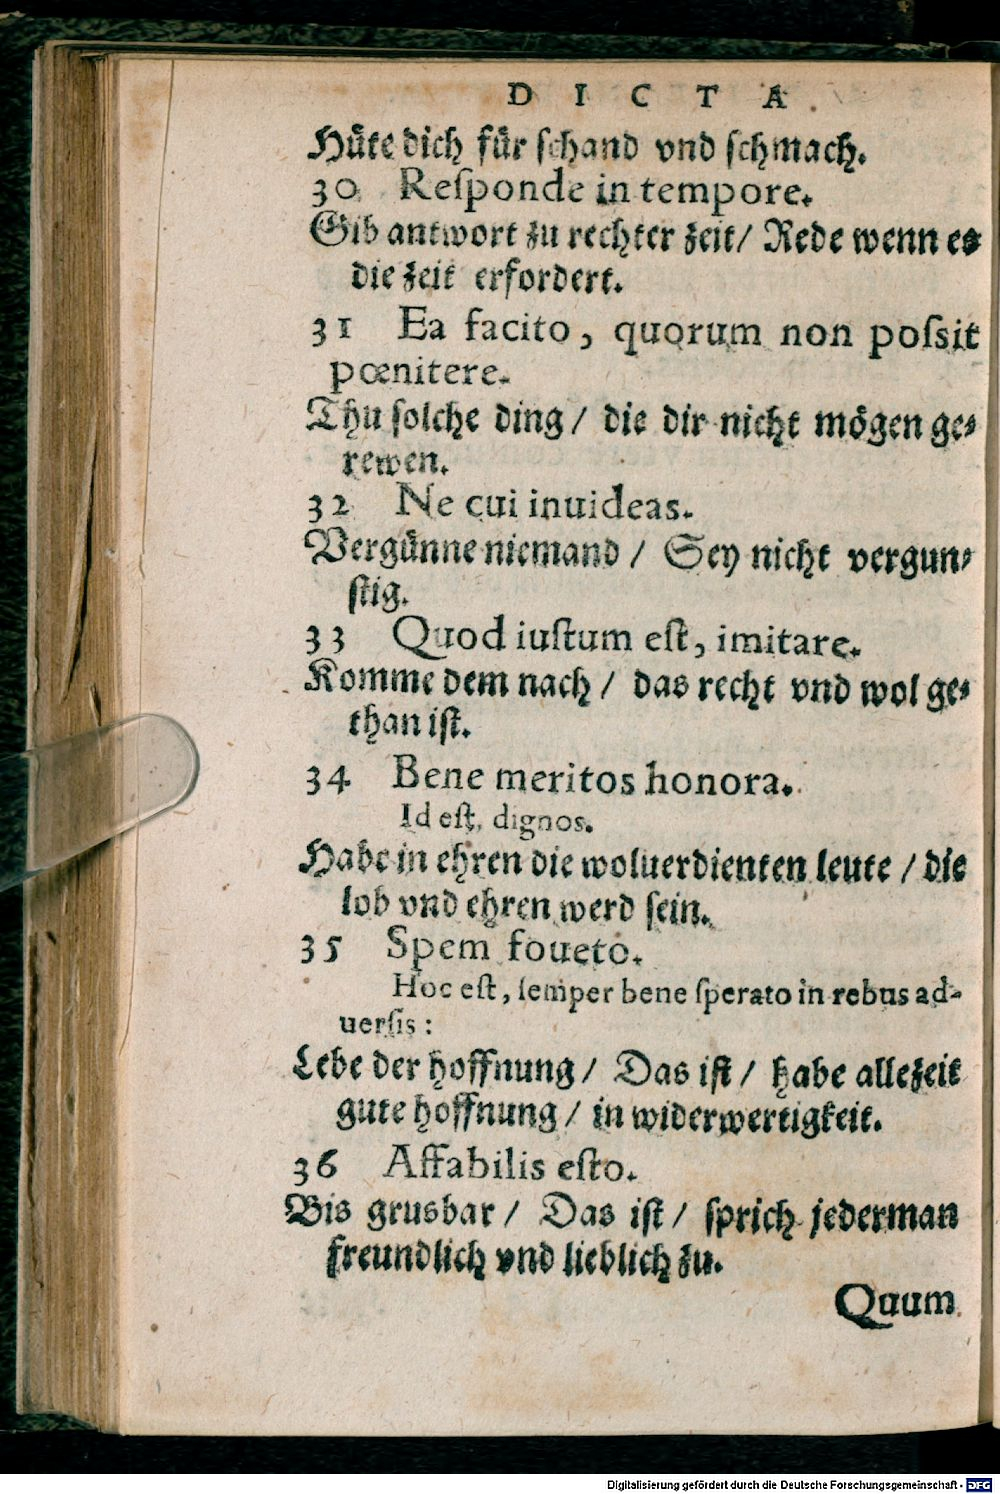 DICTA.
Hüte dich für schand vnd schmach.
30 Reſponde in tempore.
Gib antwort zu rechter zeit/ Rede wenn es
die zeit erfordert.
31 Ea facito, quorum non poſsit
pœnitere.
Thu ſolche ding/ die dir nicht mögen ge⸗
rewen.
32 Ne cui inuideas.
Vergünne niemand/ Sey nicht vergun⸗
ſtig.
33 Quod iuſtum eſt, imitare.
Komme dem nach/ das recht vnd wol ge⸗
than iſt.
34 Bene meritos honora.
Id eſt, dignos.
Habe in ehren die woluerdienten leute/ die
lob vnd ehren werd ſein.
35 Spem foueto.
Hoc eſt, ſemper bene ſperato in rebus ad-
uerſis:
Lebe der hoffnung/ Das iſt/ habe allezeit
gute hoffnung/ in widerwertigkeit.
36 Affabilis eſto.
Bis grusbar/ Das iſt/ ſprich jederman
freundlich vnd lieblich zu.
Quum
Digitalisierung gefördert durch die Deutsche Forschungsgemeinschaft - DFG